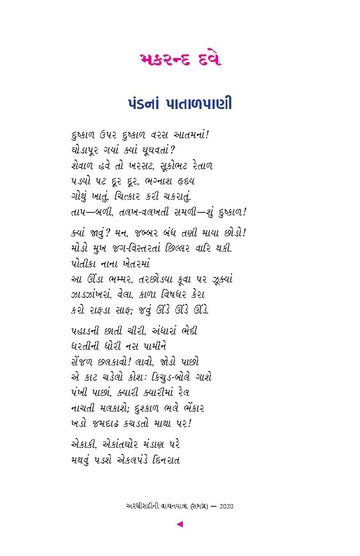 મકરન્દ દવે
પંડનાં પાતાળપાણી
દુષ્કાળ ઉપર દુષ્કાળ વરસ આતમનાં!
ઘોડાપૂર ગયાં ક્યાં ઘૂઘવતાં?
શેવાળ હવે તો ખરસટ, સૂકોભટ રેતાળ
પડ્યો પટ દૂર દૂર, ભગ્નાશ હૃદય
ગોથું ખાતું, ચિત્કાર કરી ચકરાતું.
તાપ—બળી, તલખ-વલખતી સમળી—શું દુષ્કાળ!
ક્યાં જાવું? મન, જબ્બર બંધ તણી માયા છોડો!
મોડો મુખ જગ-વિસ્તરતાં છિલ્લર વારિ થકી.
પોતીકા નાના ખેતરમાં
આ ઊંડા ભમ્મર, તરછોડયા કૂવા પર ઝૂક્યાં
ઝાડઝાંખરાં, વેલા, કાળા વિષધર કેરા
કરો રાફડા સાફ; જવું ઊંડે ઊંડે ઊંડે.
પહાડની છાતી ચીરી, અંધારાં ભેદી
ધરતીની ધોરી નસ પામીને
સેંજળ છલકાવો! લાવો, જોડો પાછો
એ કાટ ચડેલો કોશઃ કિચુડ-બોલે ગાશે
પંખી પાછાં, ક્યારી ક્યારીમાં રેલ
નાચતી મલકાશે; દુશ્કાળ ભલે ભેંકાર
ખડો જમદાઢ કચડતો માથા પર!
એકાકી, એકાંતઘોર મંડાણ પરે
મથવું પડશે એકલપંડે દિનરાત
અરધીસદીની વાચનયાત્રા (સમગ્ર) — 2020